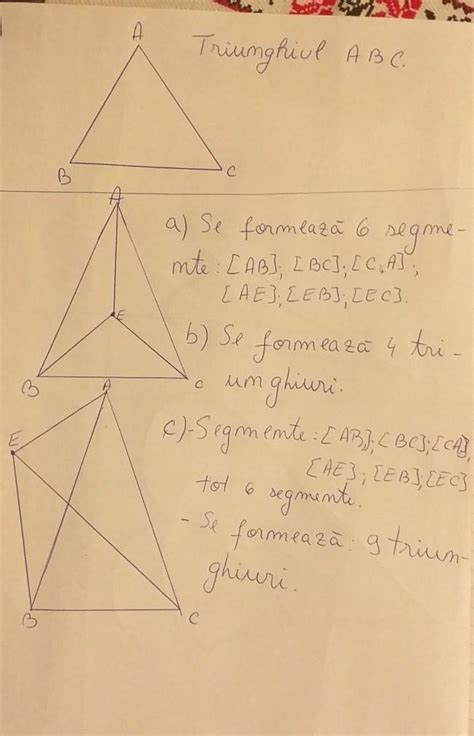 A
Triunghiul ABC.
B
C
A
a) Se formează 6 segme-
nte: [AB]; [BC]; [C,A];
[AE]; [EB]; [EC].
E
b) Se formează 4 tri-
unghiuri.
B
C
A
c)-Segmente: [AB]; [BC]; [CA],
[AE]; [EB]; [EC]
E
tot 6 segmente.
- Se formează: 9 triun-
ghiuri.
B
C